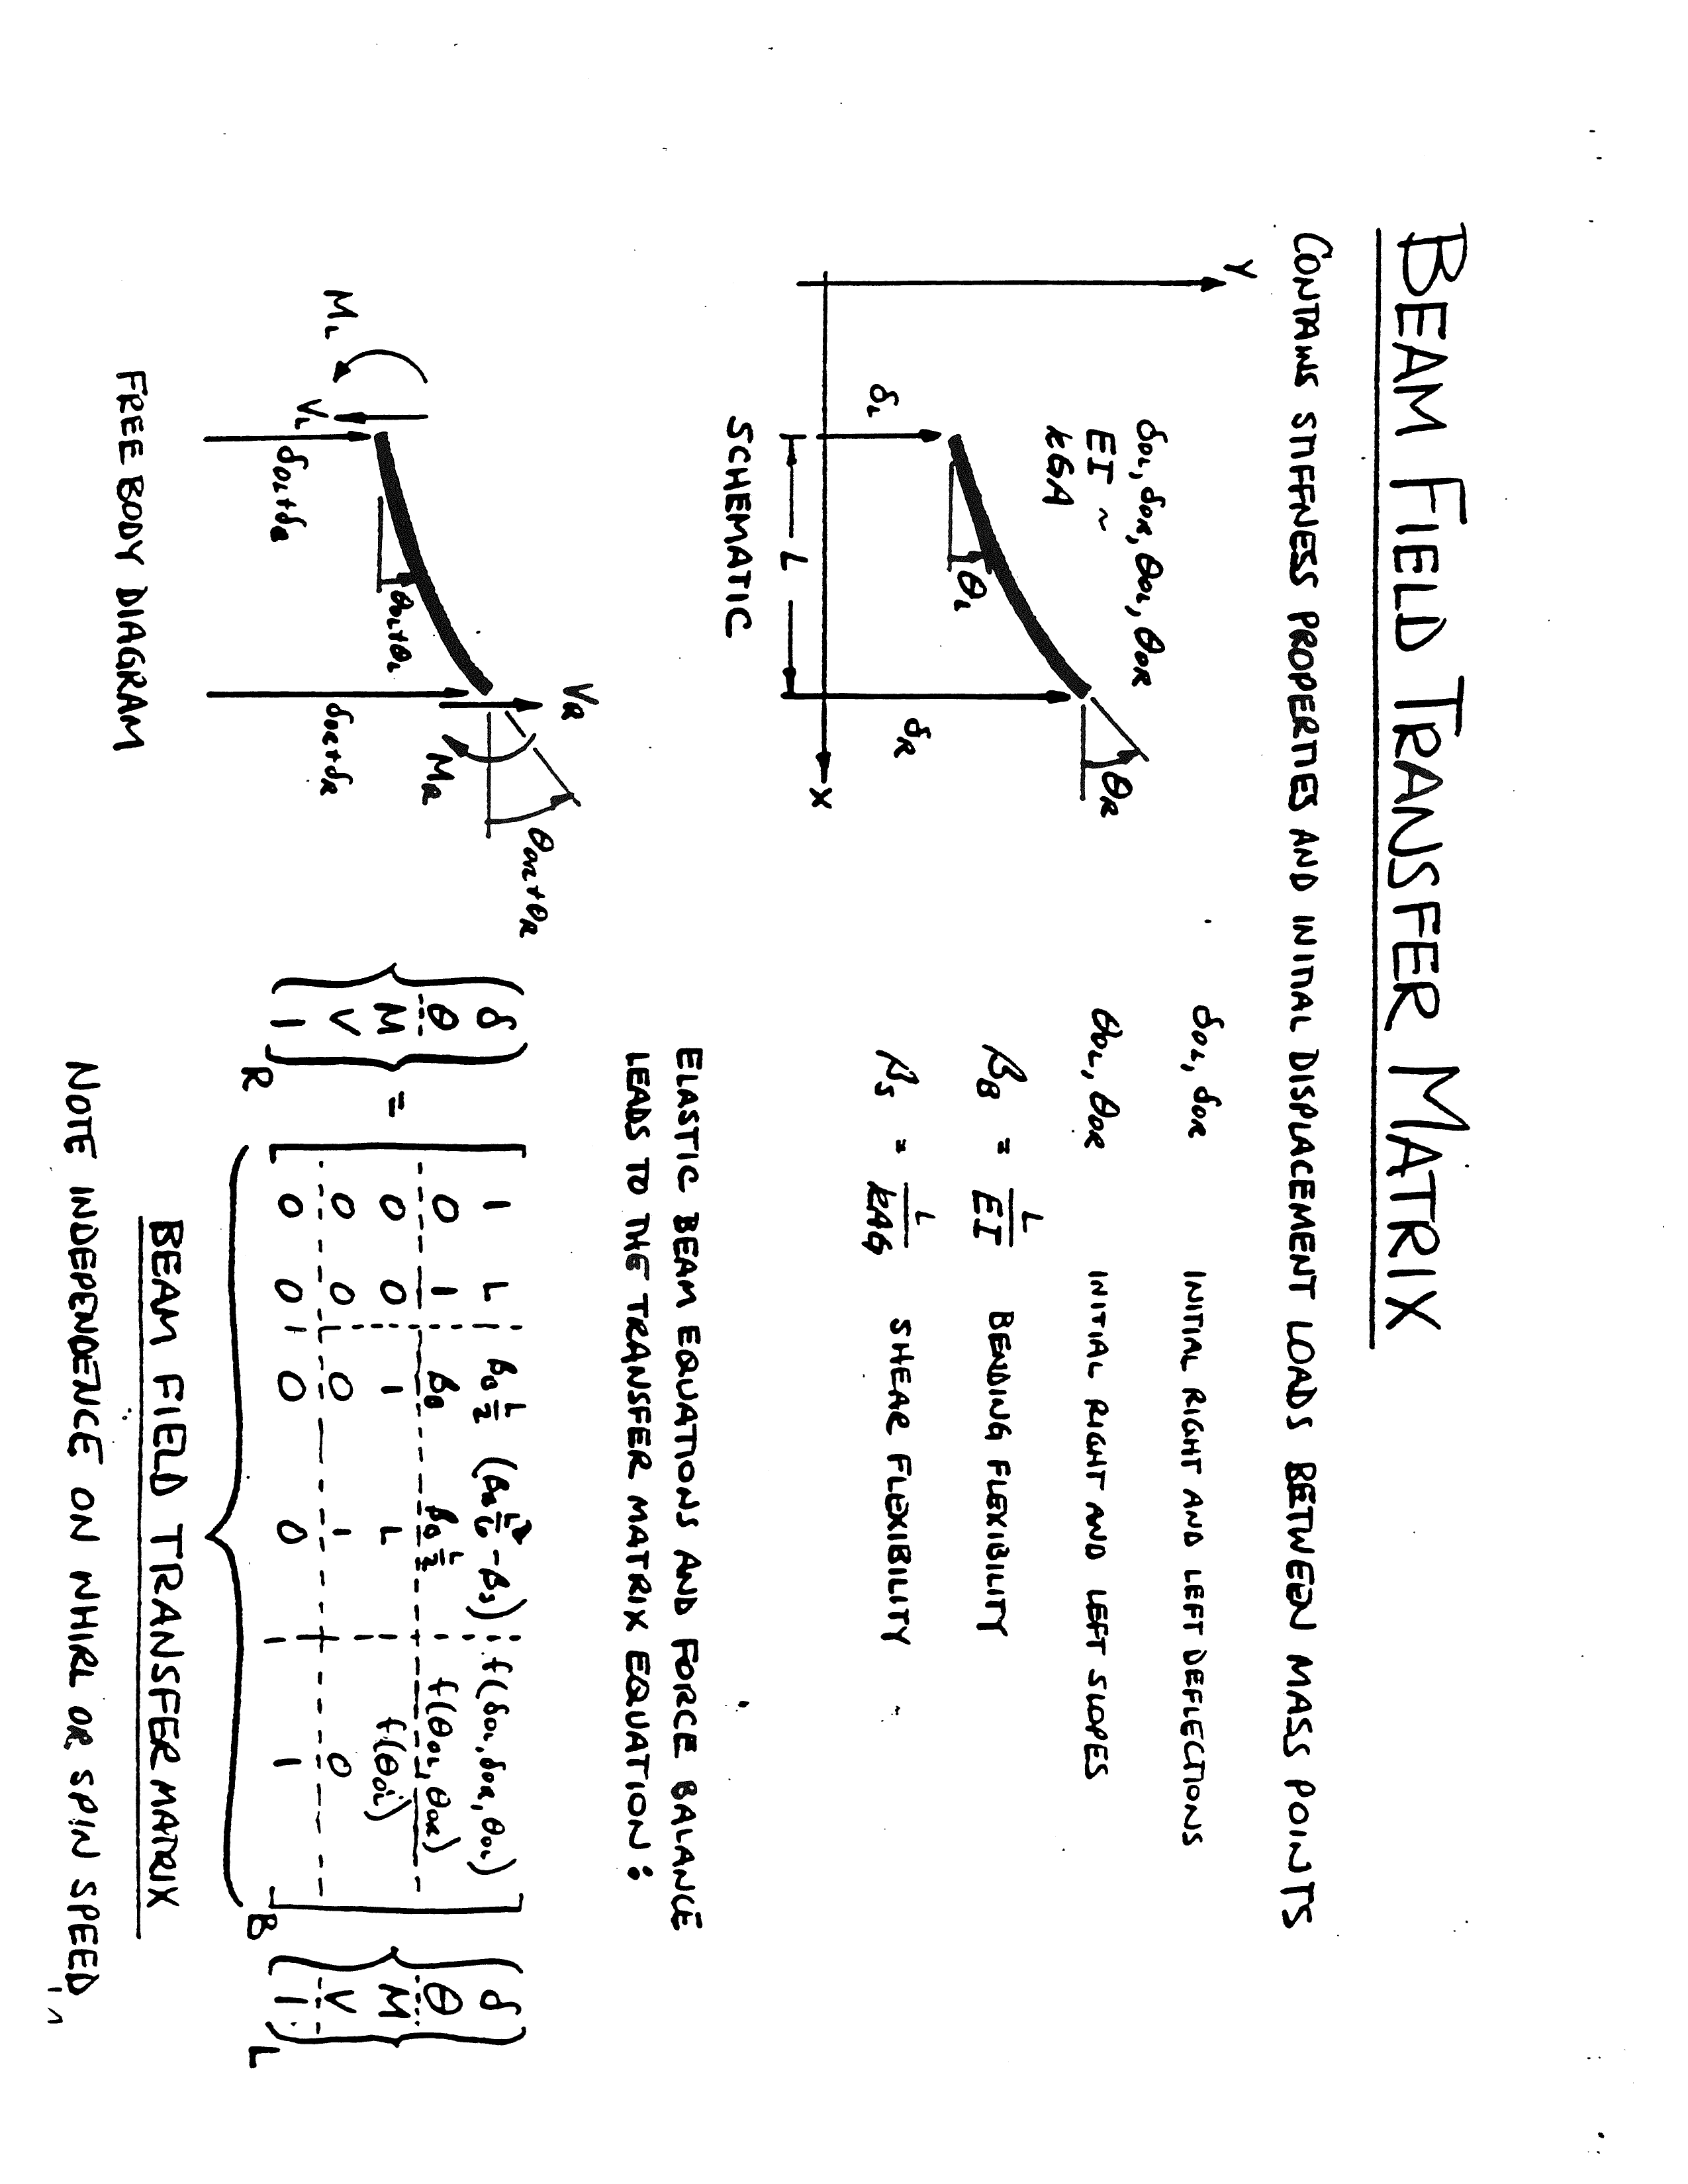 BEAM FIELD TRANSFER MATRIX
CONTAINS STIFFNESS PROPERTIES AND INITIAL DISPLACEMENT LOADS BETWEEN MASS POINTS
Y
δOL, δOR, θOL, θOR
EI ~
kGA
δL
θL
δR
θR
X
L
SCHEMATIC
δOL, δOR INITIAL RIGHT AND LEFT DEFLECTIONS
θOL, θOR INITIAL RIGHT AND LEFT SLOPES
βB = L/EI BENDING FLEXIBILITY
βS = L/kAG SHEAR FLEXIBILITY
ELASTIC BEAM EQUATIONS AND FORCE BALANCE
LEADS TO THE TRANSFER MATRIX EQUATION:
ML
VL
δOL+δR
θOL+θL
VR
MR
δOR+δR
θOR+θR
FREE BODY DIAGRAM
δ 1 L βB L/2 (βB L²/6 - βS) f(δOL, δOR, θOL) δ
θ 0 1 βB βB L/2 f(θOL, θOR) θ
M = 0 0 1 L f(θOL) M
V 0 0 0 1 0 V
1 0 0 0 0 1 1
R B L
BEAM FIELD TRANSFER MATRIX
NOTE INDEPENDENCE ON WHIRL OR SPIN SPEED